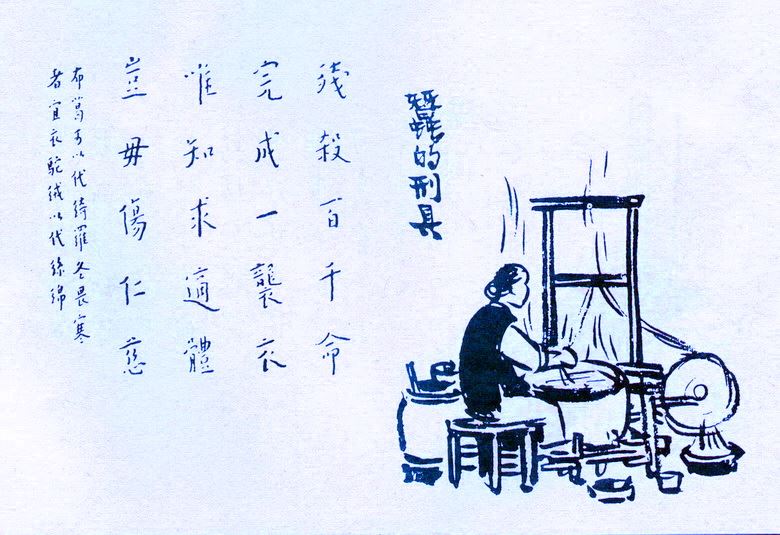 蠶的刑具
殘殺百千命
完成一襲衣
唯知求適體
豈毋傷仁慈
布葛可以代綺羅冬畏寒
者宜衣駝絨以代絲綿